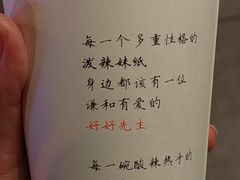 每一个多重性格的
泼辣妹纸
身边都该有一位
谦和有爱的
好好先生
每一碗酸辣热乎的